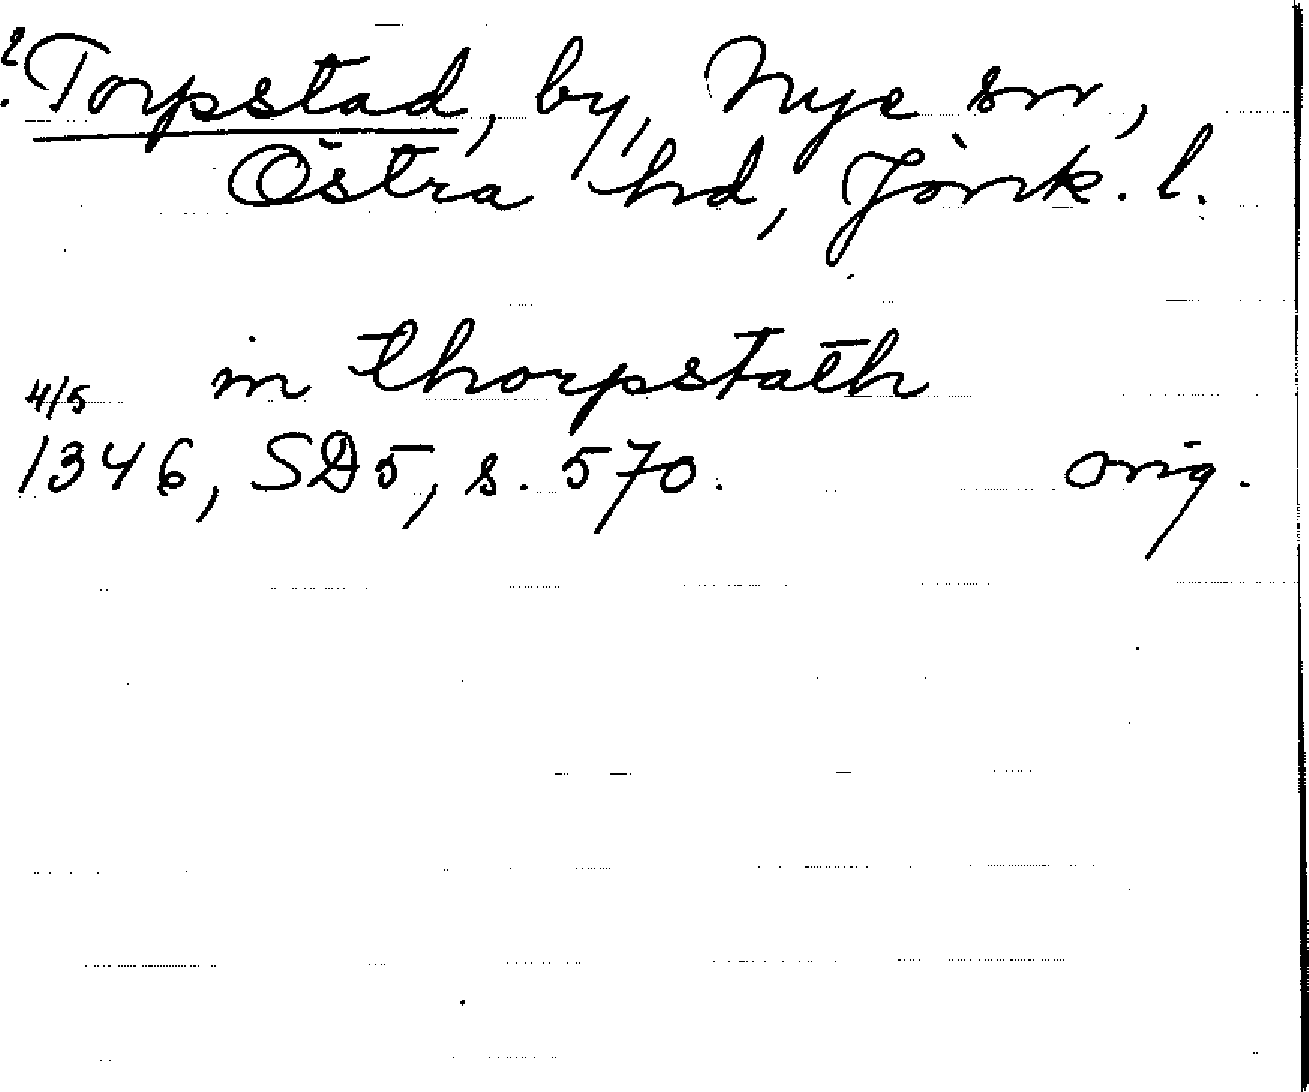 ? Torpstad, by, Nye sn,
Östra hd, Jönk. l.
in thorpstath
4/5
1346, SD5, s. 570. orig.